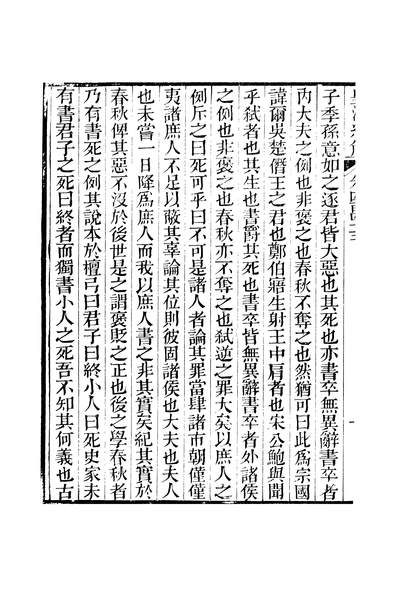 子季孫意如之逐君皆大惡也其死也亦書卒無異辭書卒者
內大夫之例也非褒之也春秋不奪之也然猶可曰此為宗國
諱爾吳楚僭王之君也鄭伯寤生射王中肩者也宋公鮑與聞
乎弒者也其生也書爵其死也書卒皆無異辭書卒者外諸侯
之例也非褒之也春秋亦不奪之也弒逆之罪大矣以庶人之
例斥之曰死可乎曰不可是諸人者論其罪當肆諸市朝僅僅
夷諸庶人不足以蔽其辜論其位則彼固諸侯也大夫也夫人
也未嘗一日降為庶人而我以庶人書之非其實矣紀其實於
春秋俾其惡不沒於後世是之謂褒貶之正也後之學春秋者
乃有書死之例其說本於檀弓曰君子曰終小人曰死史家未
有書君子之死曰終者而獨書小人之死吾不知其何義也古